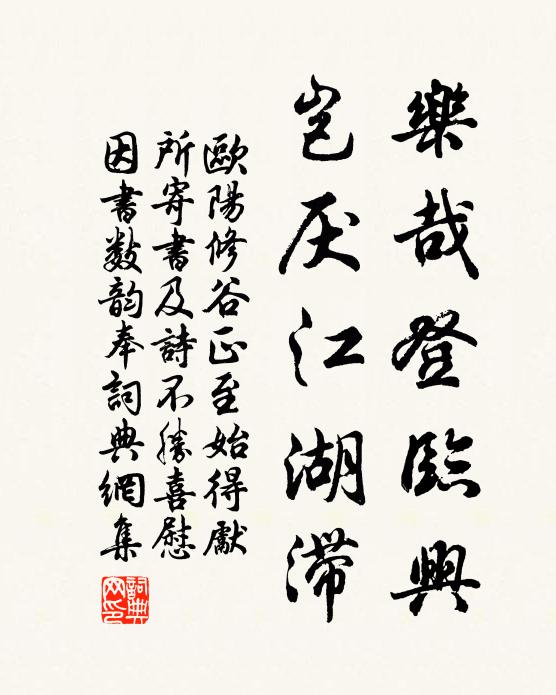 樂哉登臨興
豈厌江湖滯
歐陽修谷正至始得獻
所寄書及詩不勝喜慰
因書數韵奉詞典網集
詞典
网印